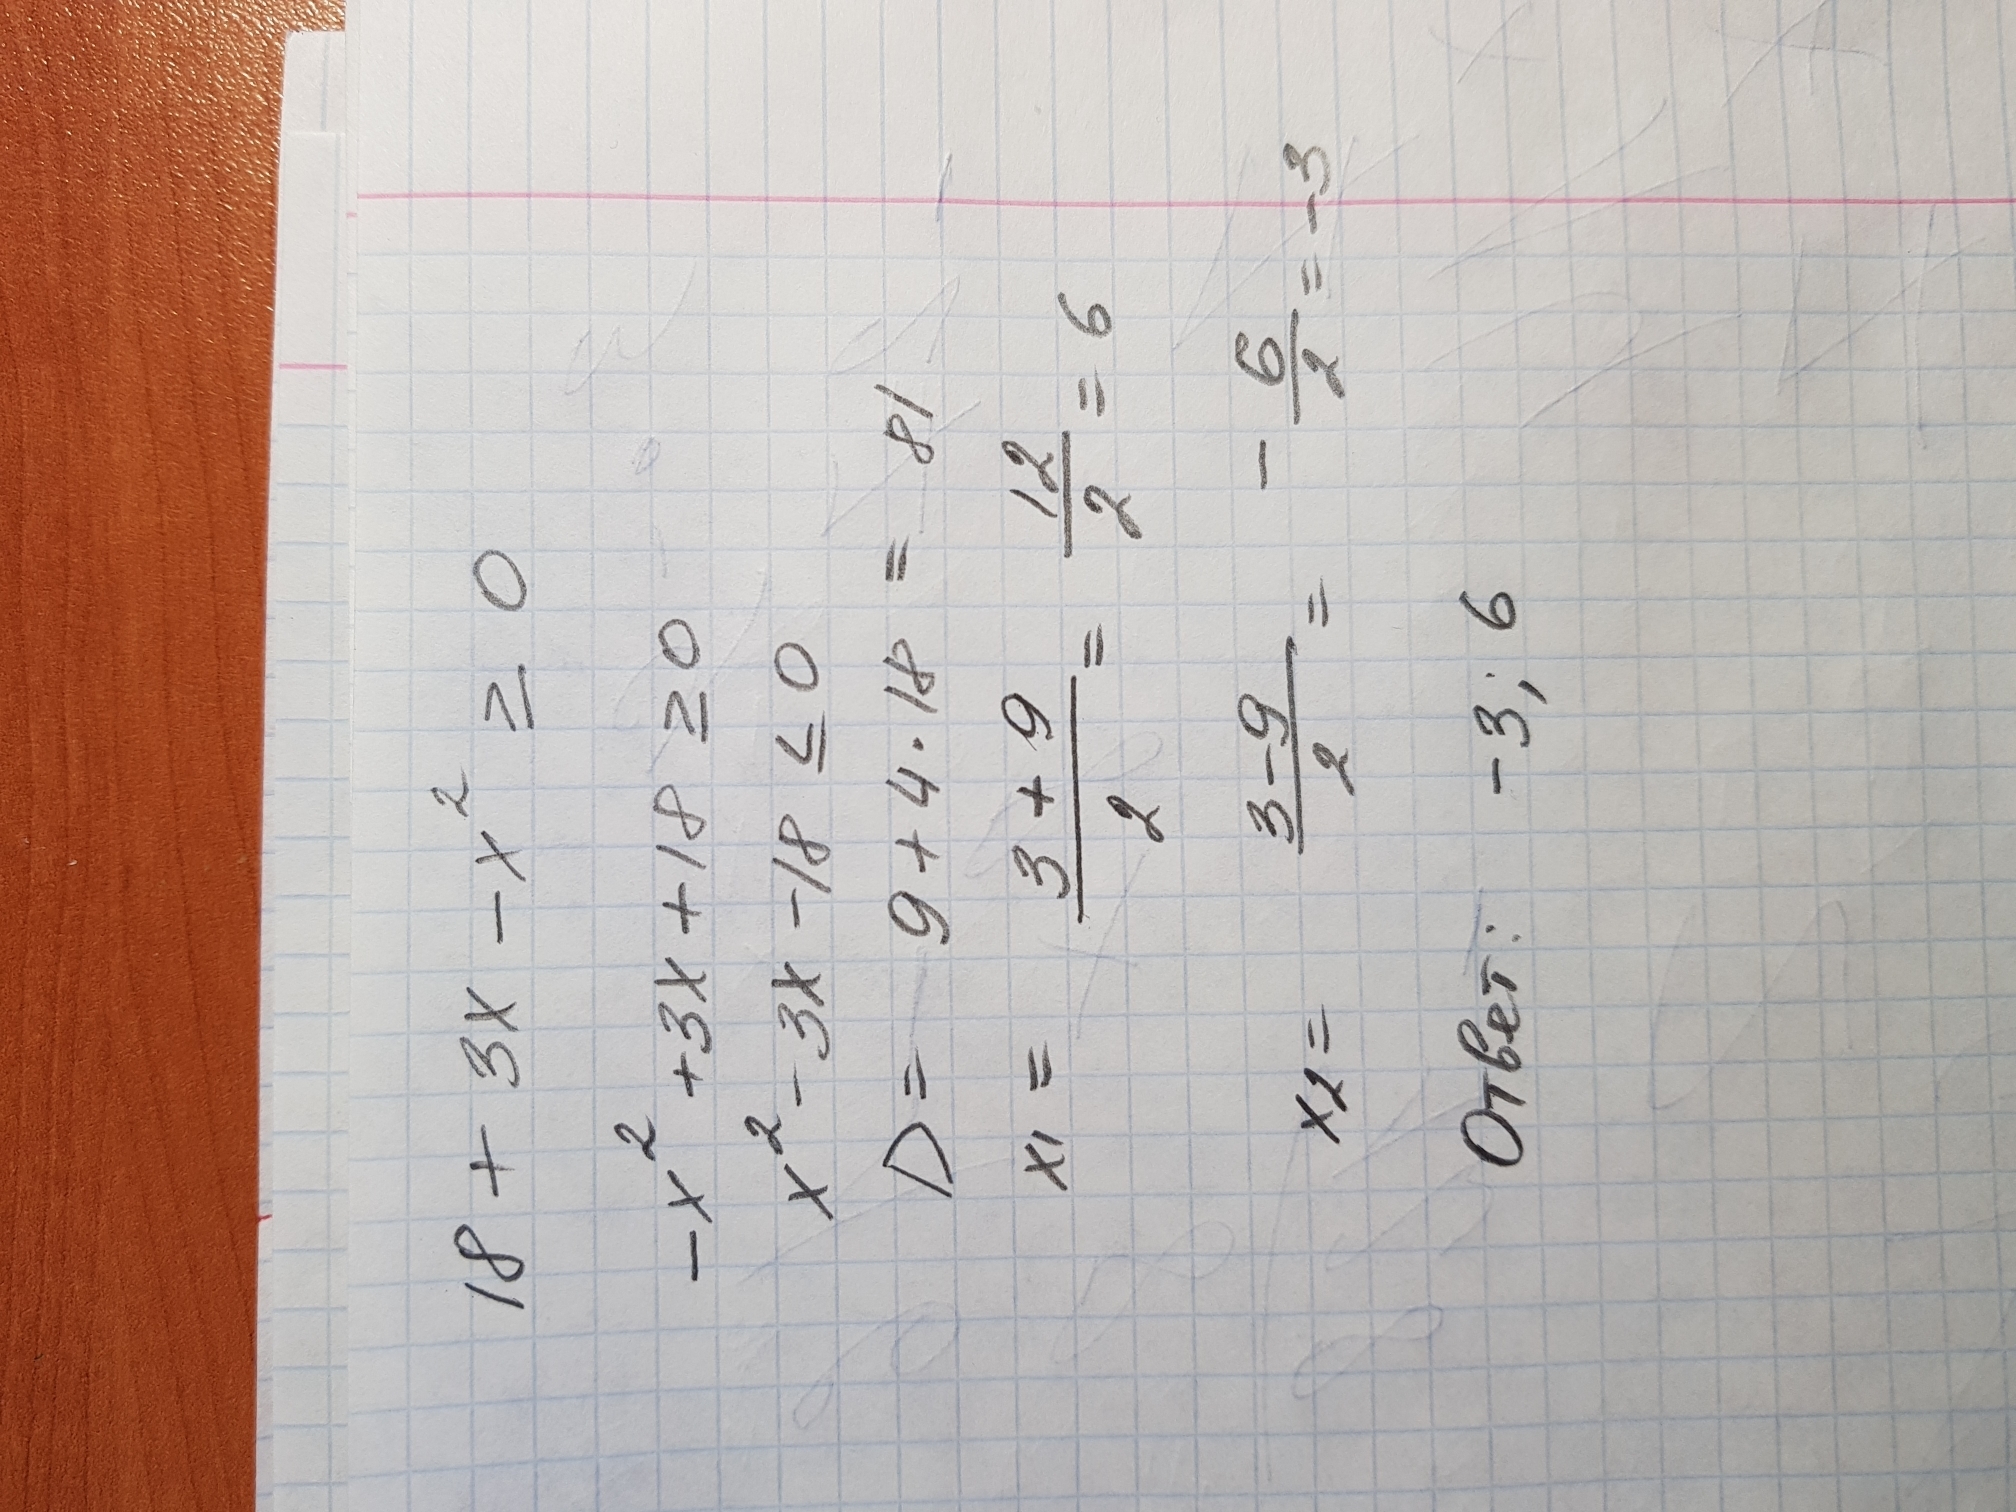 18 + 3x - x² ≥ 0
-x² + 3x + 18 ≥ 0
x² - 3x - 18 ≤ 0
D = 9 + 4 · 18 = 81
x₁ = (3 + 9)/2 = 12/2 = 6
x₂ = (3 - 9)/2 = - 6/2 = -3
Ответ: -3; 6